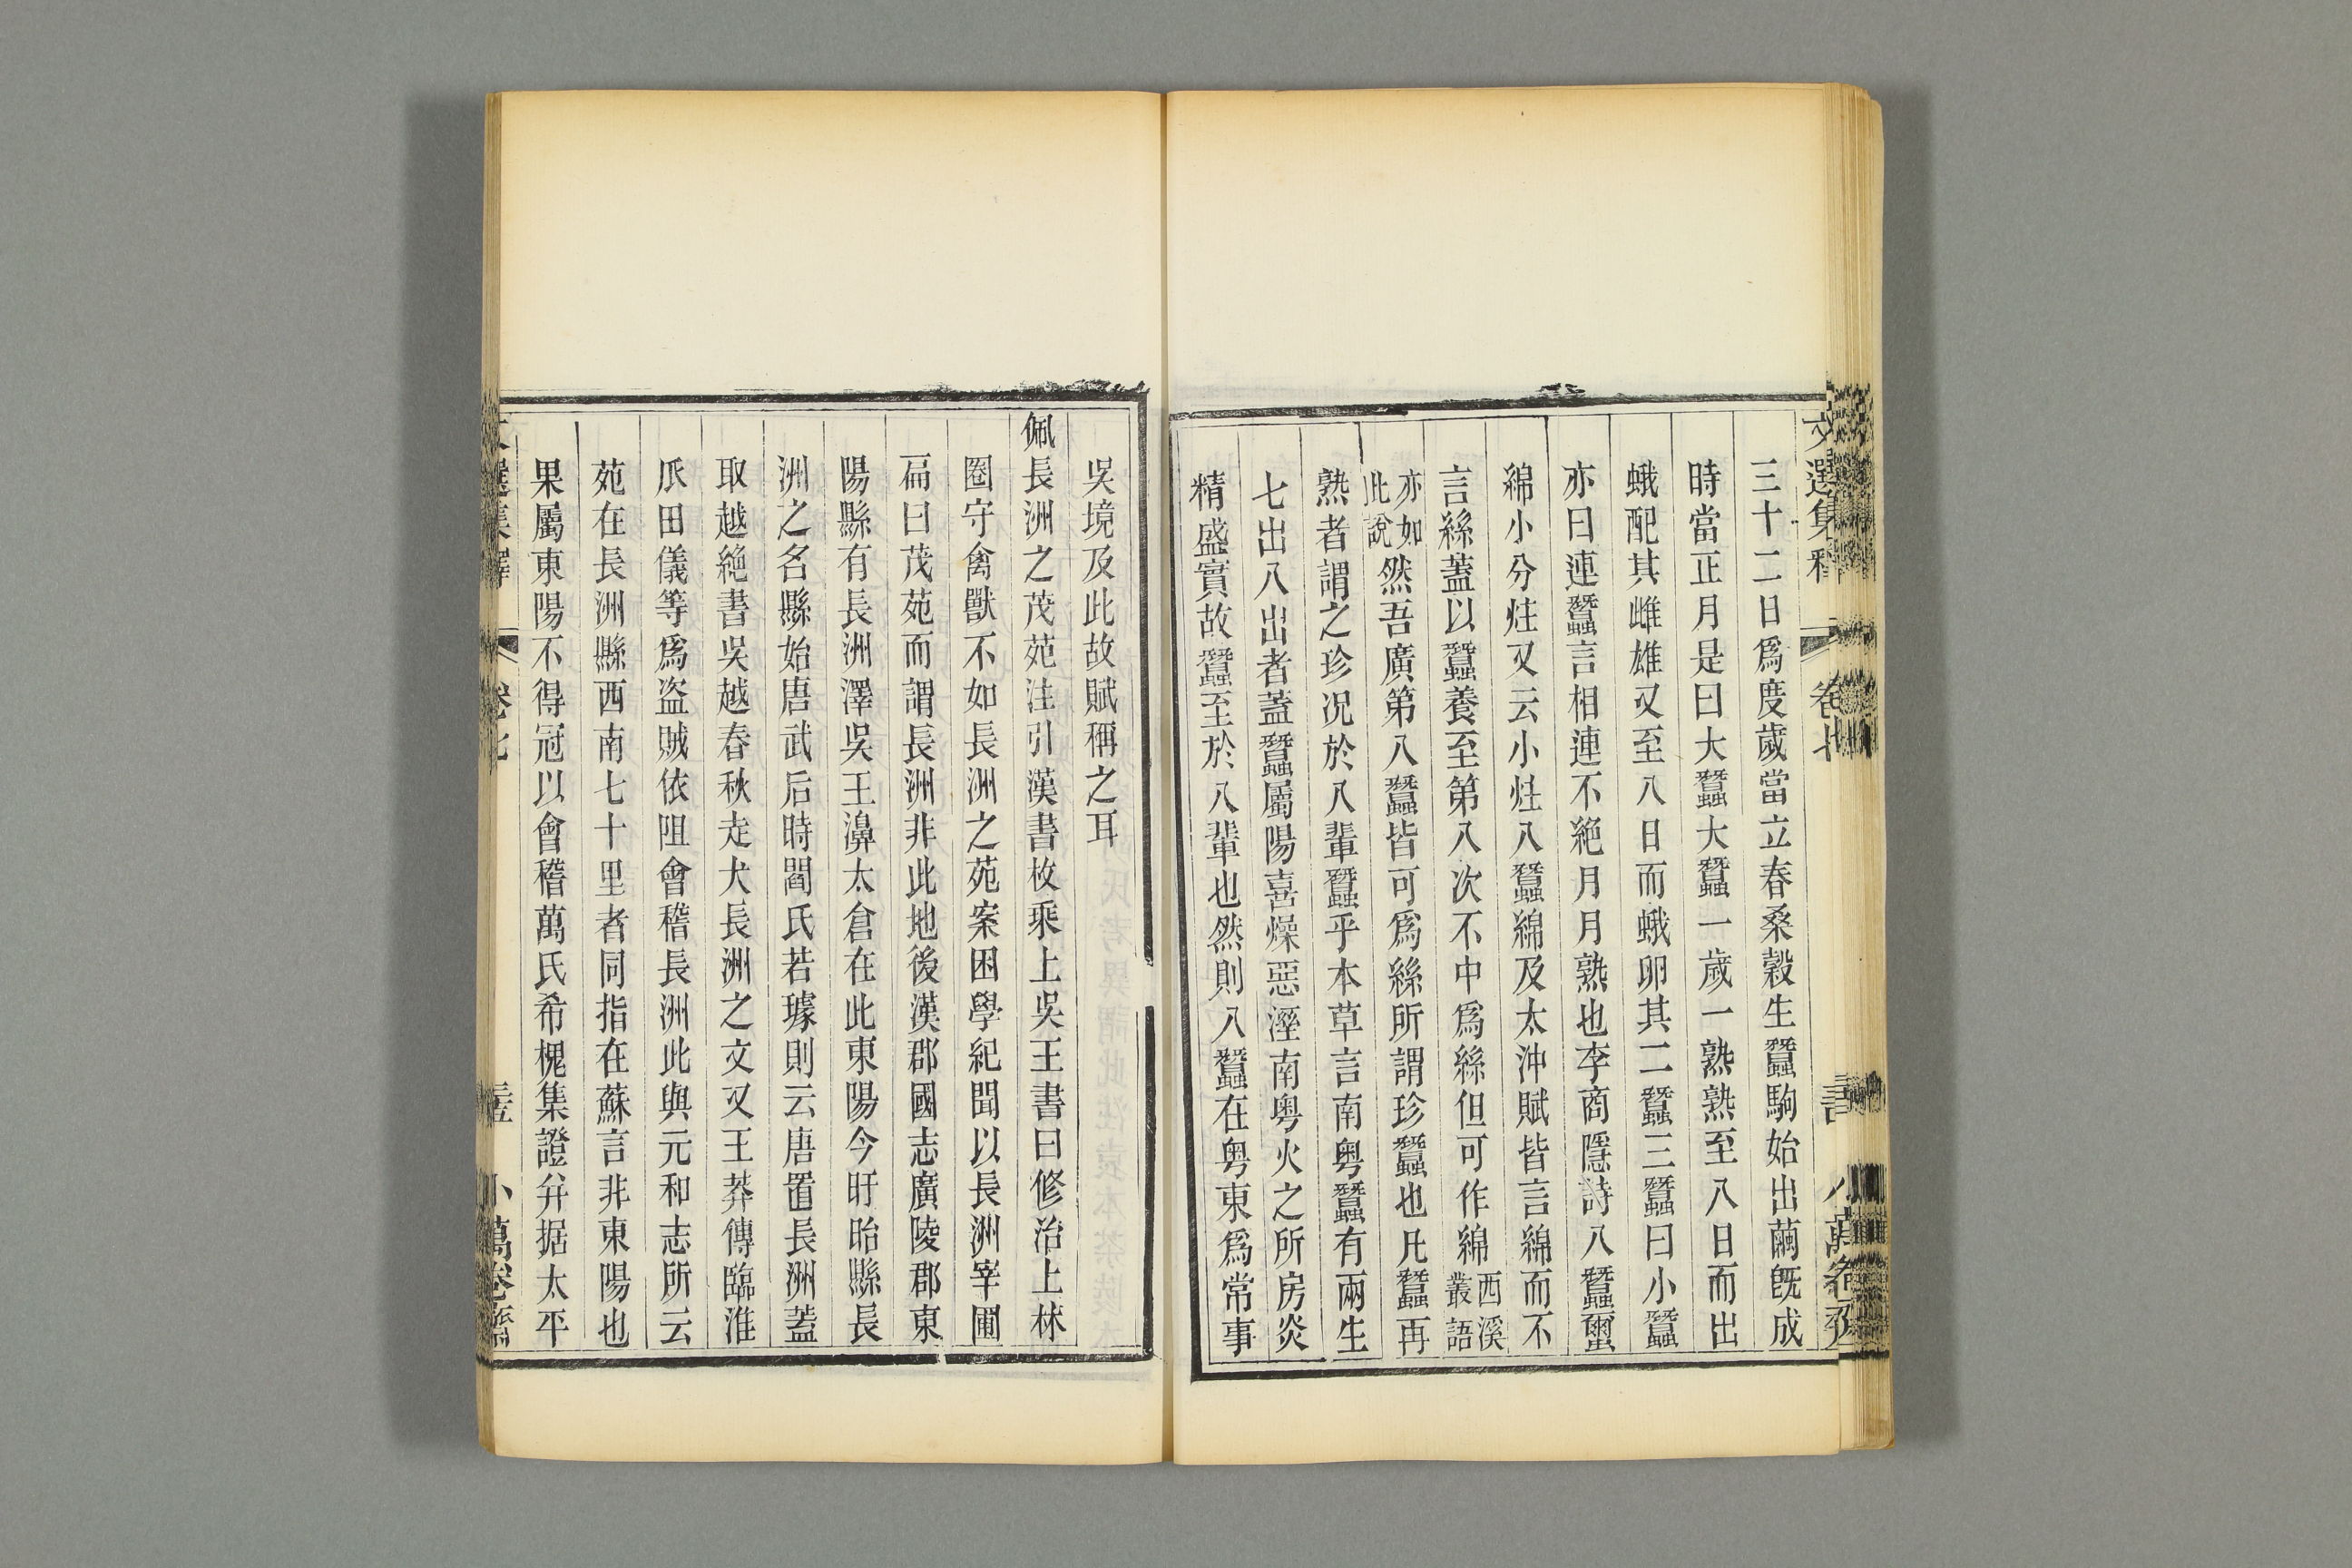 文選集釋 卷七
三十二日爲度歲當立春桑穀生蠶駒始出繭旣成
時當正月是曰大蠶大蠶一歲一熟熟至八日而出
蛾配其雌雄又至八日而蛾卵其二蠶三蠶曰小蠶
亦曰連蠶言相連不絶月月熟也李商隱詩八蠶繭
綿小分炷又云小炷八蠶綿及太沖賦皆言綿而不
言絲蓋以蠶養至第八次不中爲絲但可作綿西溪叢語
亦如此說然吾廣第八蠶皆可爲絲所謂珍蠶也凡蠶再
熟者謂之珍况於八輩蠶乎本草言南粤蠶有兩生
七出八出者蓋蠶屬陽喜燥惡溼南粤火之所房炎
精盛實故蠶至於八輩也然則八蠶在粤東爲常事
吳境及此故賦稱之耳
佩長洲之茂苑注引漢書枚乘上吳王書曰修治上林
圈守禽獸不如長洲之苑案困學紀聞以長洲宰圃
扁曰茂苑而謂長洲非此地後漢郡國志廣陵郡東
陽縣有長洲澤吳王濞太倉在此東陽今盱眙縣長
洲之名縣始唐武后時閻氏若璩則云唐置長洲蓋
取越絶書吳越春秋走犬長洲之文又王莽傳臨淮
瓜田儀等爲盜賊依阻會稽長洲此與元和志所云
苑在長洲縣西南七十里者同指在蘇言非東陽也
果屬東陽不得冠以會稽萬氏希槐集證幷据太平
文選集釋 卷七 小萬卷齋